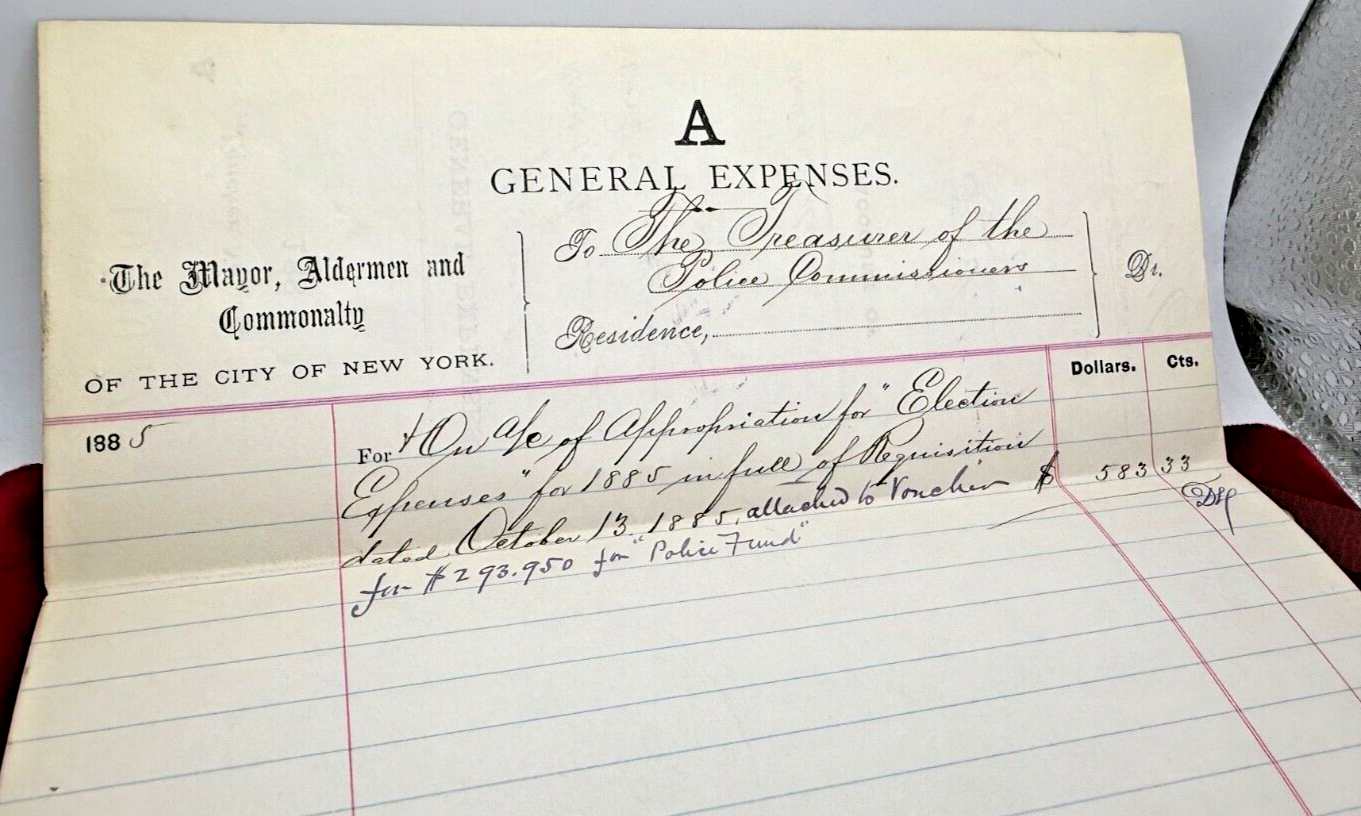 A
GENERAL EXPENSES.
The Mayor, Aldermen and
Commonalty
OF THE CITY OF NEW YORK.
To The Treasurer of the
Police Commissioners
Residence,
Dr.
Dollars. Cts.
1885
For On a/c of Appropriation for "Election
Expenses" for 1885 in full of Requisition
dated October 13, 1885, attached to Voucher $ 583 33
for $293.950 for "Police Fund"